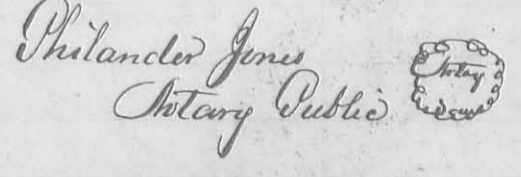 Philander Jones
Notary Public
Notary
Seal